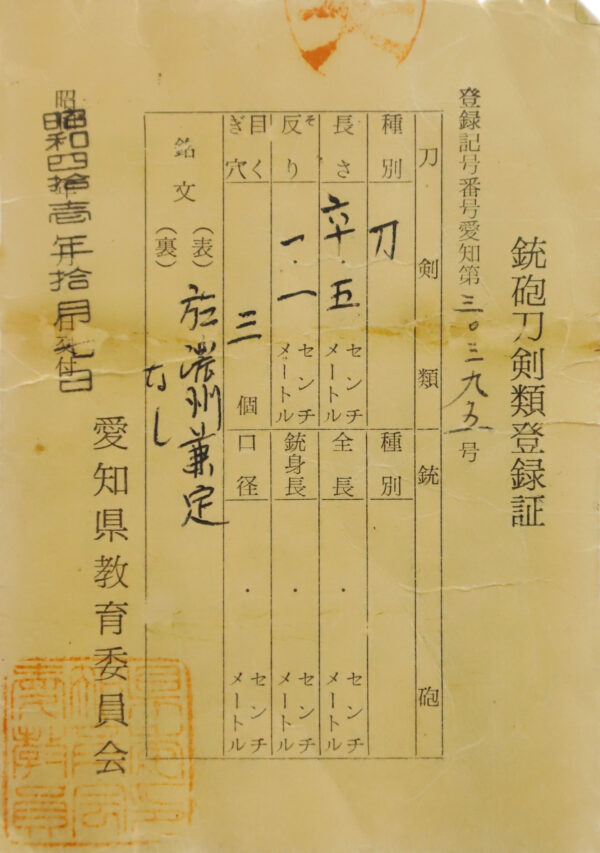 銃砲刀剣類登録証
登録記号番号愛知第三〇三九五号
刀剣類 銃砲
種別 刀 種別
長さ 六十・五 センチメートル 全長 ・ センチメートル
反り そ 一・一 センチメートル 銃身長 ・ センチメートル
目くぎ穴 三 個 口径 ・ センチメートル
銘文 (表) 於濃州兼定
(裏) なし
愛知県教育委員会
昭和四拾壱年拾月七日交付